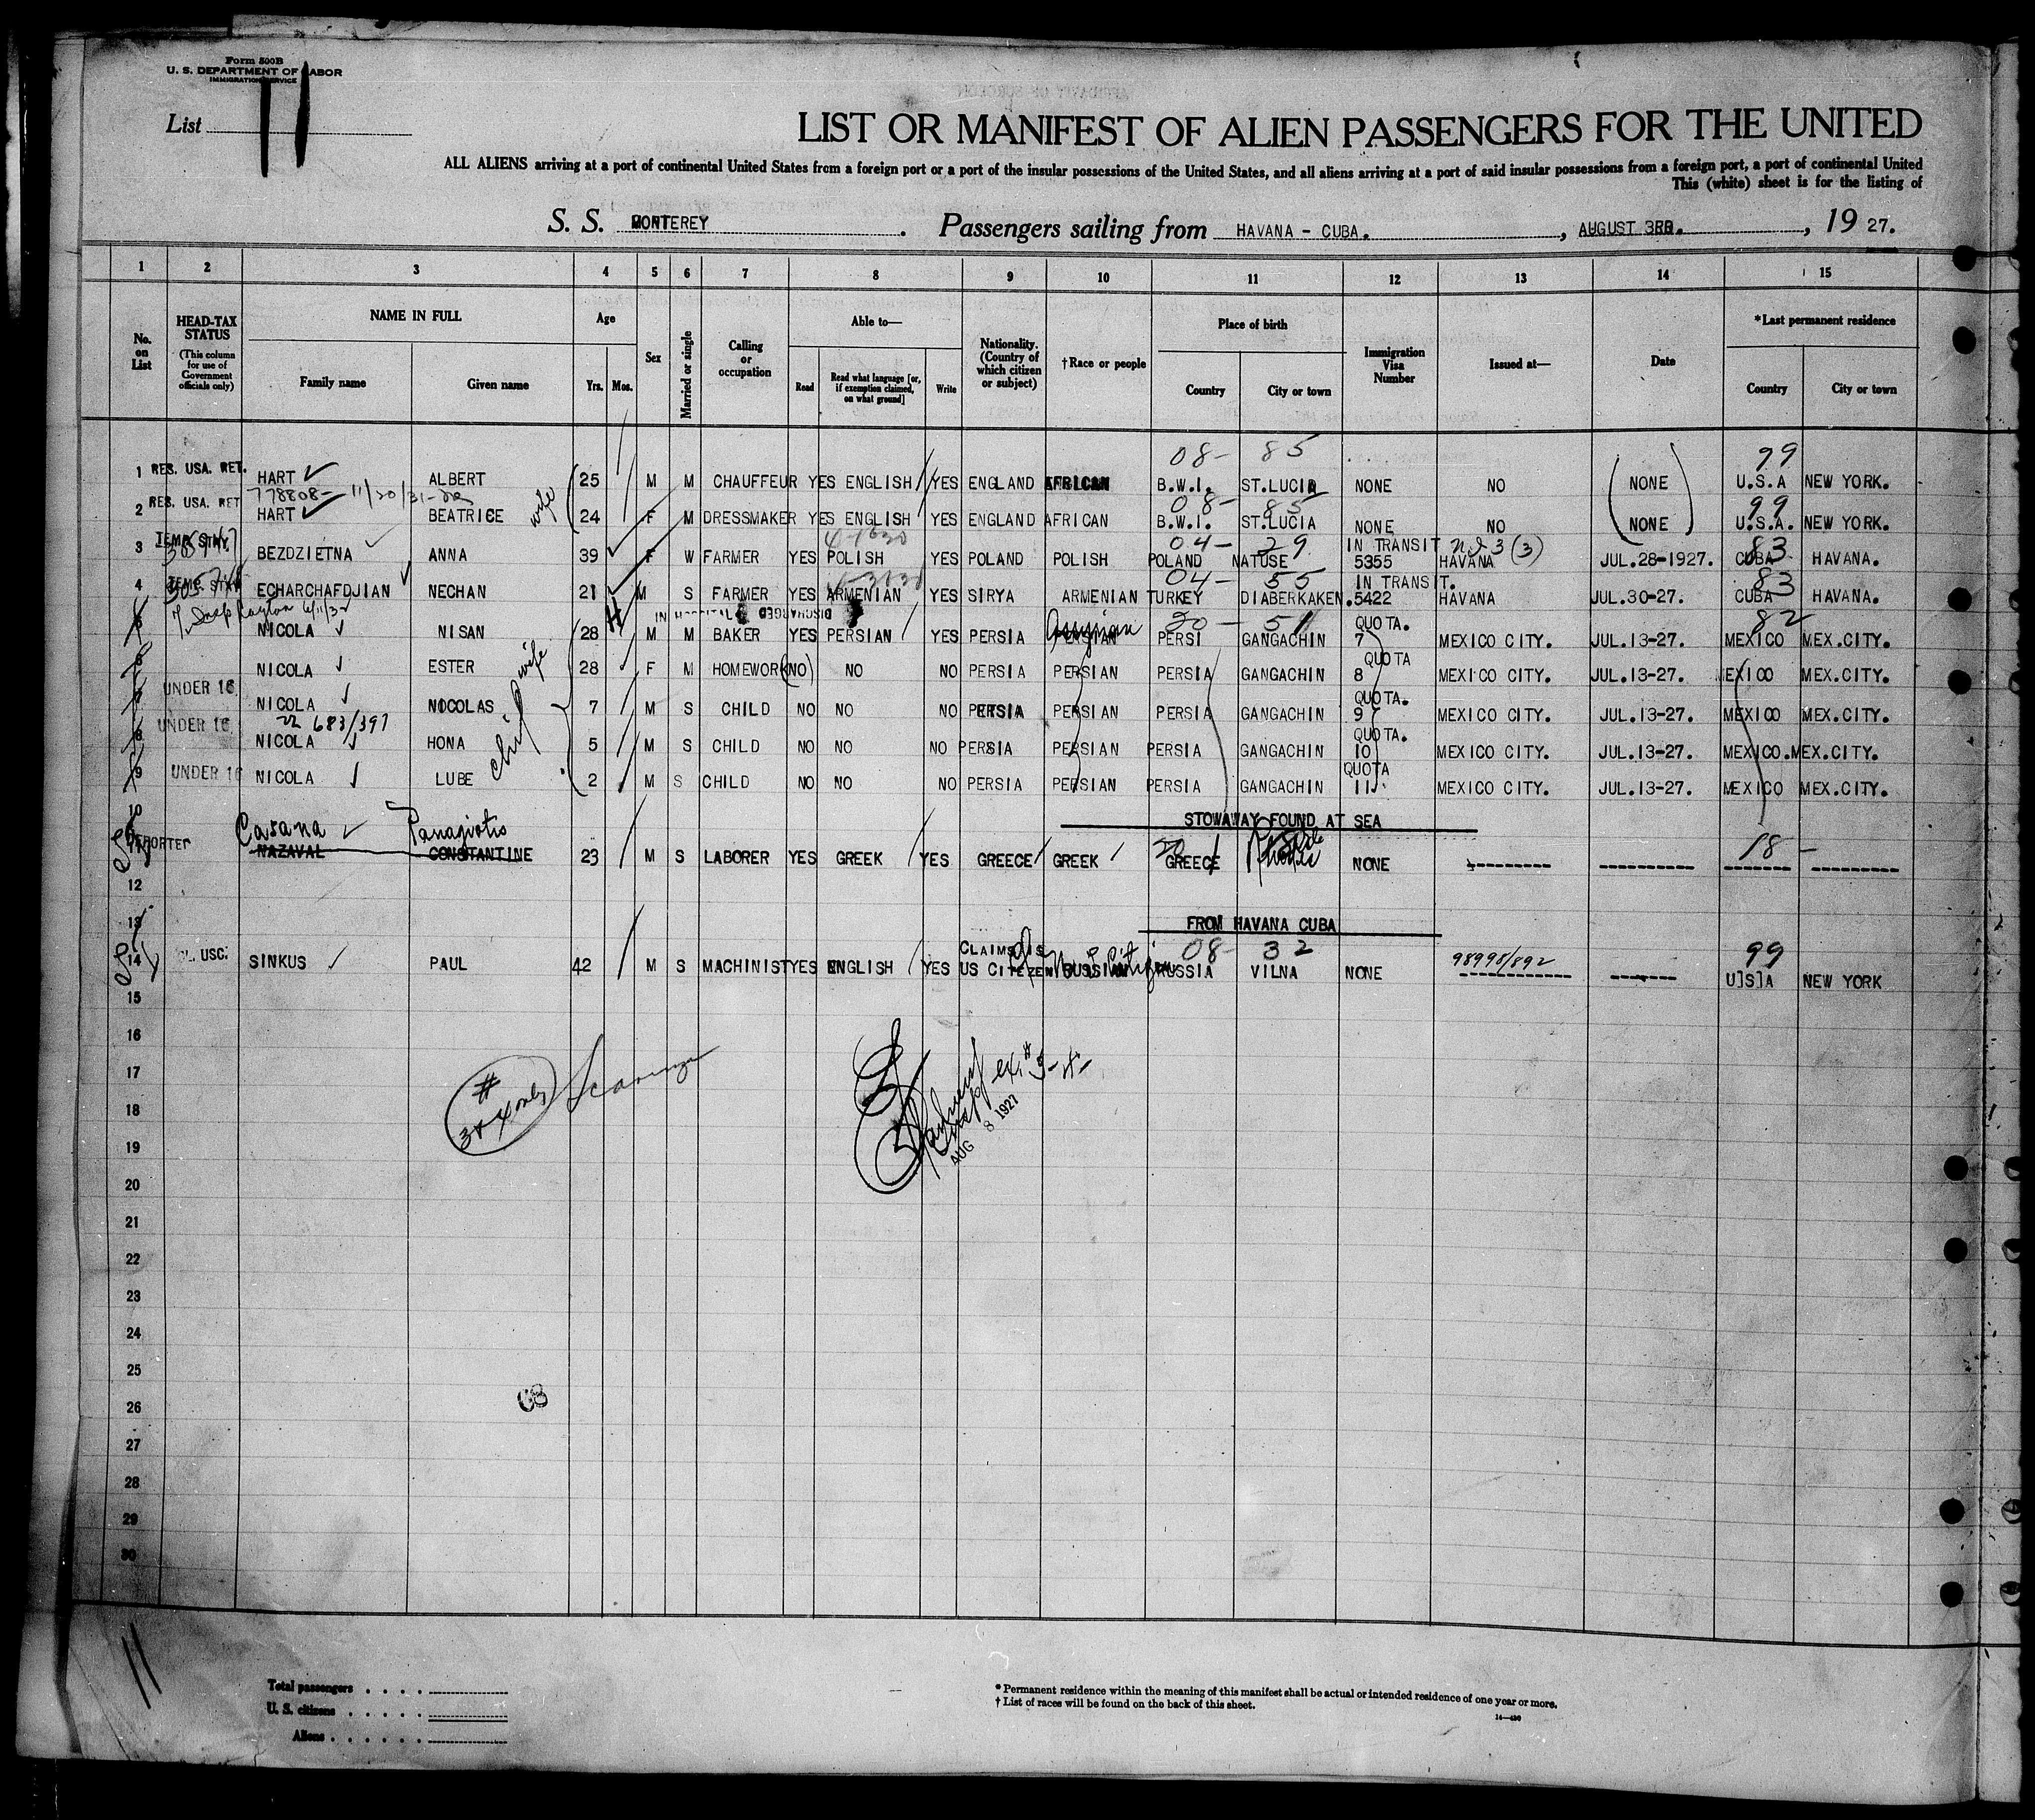 Form 500B
U. S. DEPARTMENT OF LABOR
IMMIGRATION SERVICE
List 11
LIST OR MANIFEST OF ALIEN PASSENGERS FOR THE UNITED
ALL ALIENS arriving at a port of continental United States from a foreign port or a port of the insular possessions of the United States, and all aliens arriving at a port of said insular possessions from a foreign port, a port of continental United
This (white) sheet is for the listing of
S. S. MONTEREY. Passengers sailing from HAVANA - CUBA., AUGUST 3RD., 19 27.
1 2 3 4 5 6 7 8 9 10 11 12 13 14 15
No. on List
HEAD-TAX STATUS (This column for use of Government officials only)
NAME IN FULL Family name Given name
Age Yrs. Mos.
Sex
Married or single
Calling or occupation
Able to— Read Read what language [or, if exemption claimed, on what ground] Write
Nationality. (Country of which citizen or subject)
†Race or people
Place of birth Country City or town
Immigration Visa Number
Issued at—
Date
*Last permanent residence Country City or town
08- 85 99
1 RES. USA. RET. HART ALBERT 25 M M CHAUFFEUR YES ENGLISH YES ENGLAND AFRICAN B.W.I. ST.LUCIA NONE NO (NONE) U.S.A NEW YORK.
778808- 11/20/31 wife 08- 85 99
2 RES. USA. RET HART BEATRICE 24 F M DRESSMAKER YES ENGLISH YES ENGLAND AFRICAN B.W.I. ST.LUCIA NONE NO (NONE) U.S.A. NEW YORK.
04- 29 IN TRANSIT 83
3 TEMP. STAY. BEZDZIETNA ANNA 39 F W FARMER YES POLISH YES POLAND POLISH POLAND NATUSE 5355 HAVANA JUL.28-1927. CUBA HAVANA.
04- 55 IN TRANSIT. 83
4 TEMP. STAY ECHARCHAFDJIAN NECHAN 21 M S FARMER YES ARMENIAN YES SIRYA ARMENIAN TURKEY DIABERKAKEN. 5422 HAVANA JUL.30-27. CUBA HAVANA.
IN HOSPITAL DISCHARGED
Assyrian 20- 51 QUOTA. 82
5 NICOLA NISAN 28 M M BAKER YES PERSIAN YES PERSIA PERSIAN PERSI GANGACHIN 7 MEXICO CITY. JUL.13-27. MEXICO MEX.CITY.
wife QUOTA
6 NICOLA ESTER 28 F M HOMEWORK (NO) NO NO PERSIA PERSIAN PERSIA GANGACHIN 8 MEXICO CITY. JUL.13-27. MEXICO MEX.CITY.
QUOTA.
7 UNDER 16 NICOLA NICOLAS 7 M S CHILD NO NO NO PERSIA PERSIAN PERSIA GANGACHIN 9 MEXICO CITY. JUL.13-27. MEXICO MEX.CITY.
683/397 QUOTA.
8 UNDER 16 NICOLA HONA 5 M S CHILD NO NO NO PERSIA PERSIAN PERSIA GANGACHIN 10 MEXICO CITY. JUL.13-27. MEXICO. MEX.CITY.
QUOTA
9 UNDER 16 NICOLA LUBE 2 M S CHILD NO NO NO PERSIA PERSIAN PERSIA GANGACHIN 11 MEXICO CITY. JUL.13-27. MEXICO MEX.CITY.
10 STOWAWAY FOUND AT SEA
Casana Panagiotis 20 18 -
11 NAZAVAL CONSTANTINE 23 M S LABORER YES GREEK YES GREECE GREEK GREECE Rhodes NONE --------- ---------- ------- ---------
12
13 FROM HAVANA CUBA
CLAIMS IS 08- 32 98998/892 99
14 CL. USC. SINKUS PAUL 42 M S MACHINIST YES ENGLISH YES US CITEZEN RUSSIAN RUSSIA VILNA NONE ----------- ------- U]S]A NEW YORK
15
16
17
18
19
20
21
22
23
24
25
26
27
28
29
30
# 3 & 4 only
ex. # 3-4-
AUG 8 1927
11
Total passengers . . . .
U. S. citizens . . . . .
Aliens . . . . . .
* Permanent residence within the meaning of this manifest shall be actual or intended residence of one year or more.
† List of races will be found on the back of this sheet.
14—430